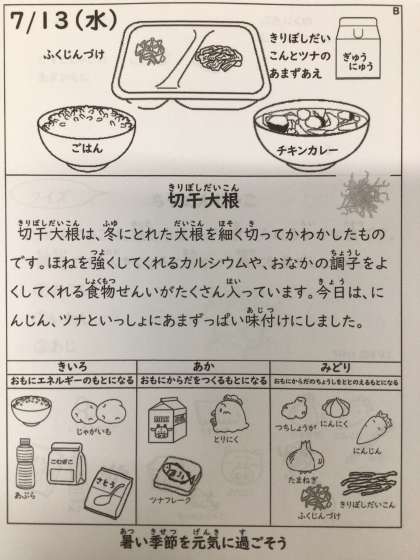 7/13(水)
B
ふくじんづけ
きりぼしだい
こんとツナの
あまずあえ
ぎゅう
にゅう
ごはん
チキンカレー
きりぼしだいこん
切干大根
きりぼしだいこん ふゆ だいこん ほそ き
切干大根は、冬にとれた大根を細く切ってかわかしたもの
つよ ちょうし
です。ほねを強くしてくれるカルシウムや、おなかの調子をよ
しょくもつ はい きょう
くしてくれる食物せんいがたくさん入っています。今日は、に
あじつ
んじん、ツナといっしょにあまずっぱい味付けにしました。
きいろ
おもにエネルギーのもとになる
じゃがいも
あぶら
こむぎこ
さとう
あか
おもにからだをつくるもとになる
とりにく
ツナフレーク
みどり
おもにからだのちょうしをととのえるもとになる
つちしょうが
にんにく
にんじん
たまねぎ
ふくじんづけ
きりぼしだいこん
あつ きせつ げんき す
暑い季節を元気に過ごそう